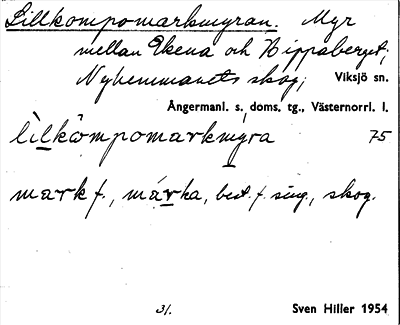 Lillkompomarkmyran. Myr
mellan Ekena och Nippaberget,
Nyhemmanets skog; Viksjö sn.
Ångermanl. s. doms. tg., Västernorrl. l.
lìlkòmpomarkmýra 75
mark f., márka, best. f. sing., skog.
31. Sven Hiller 1954